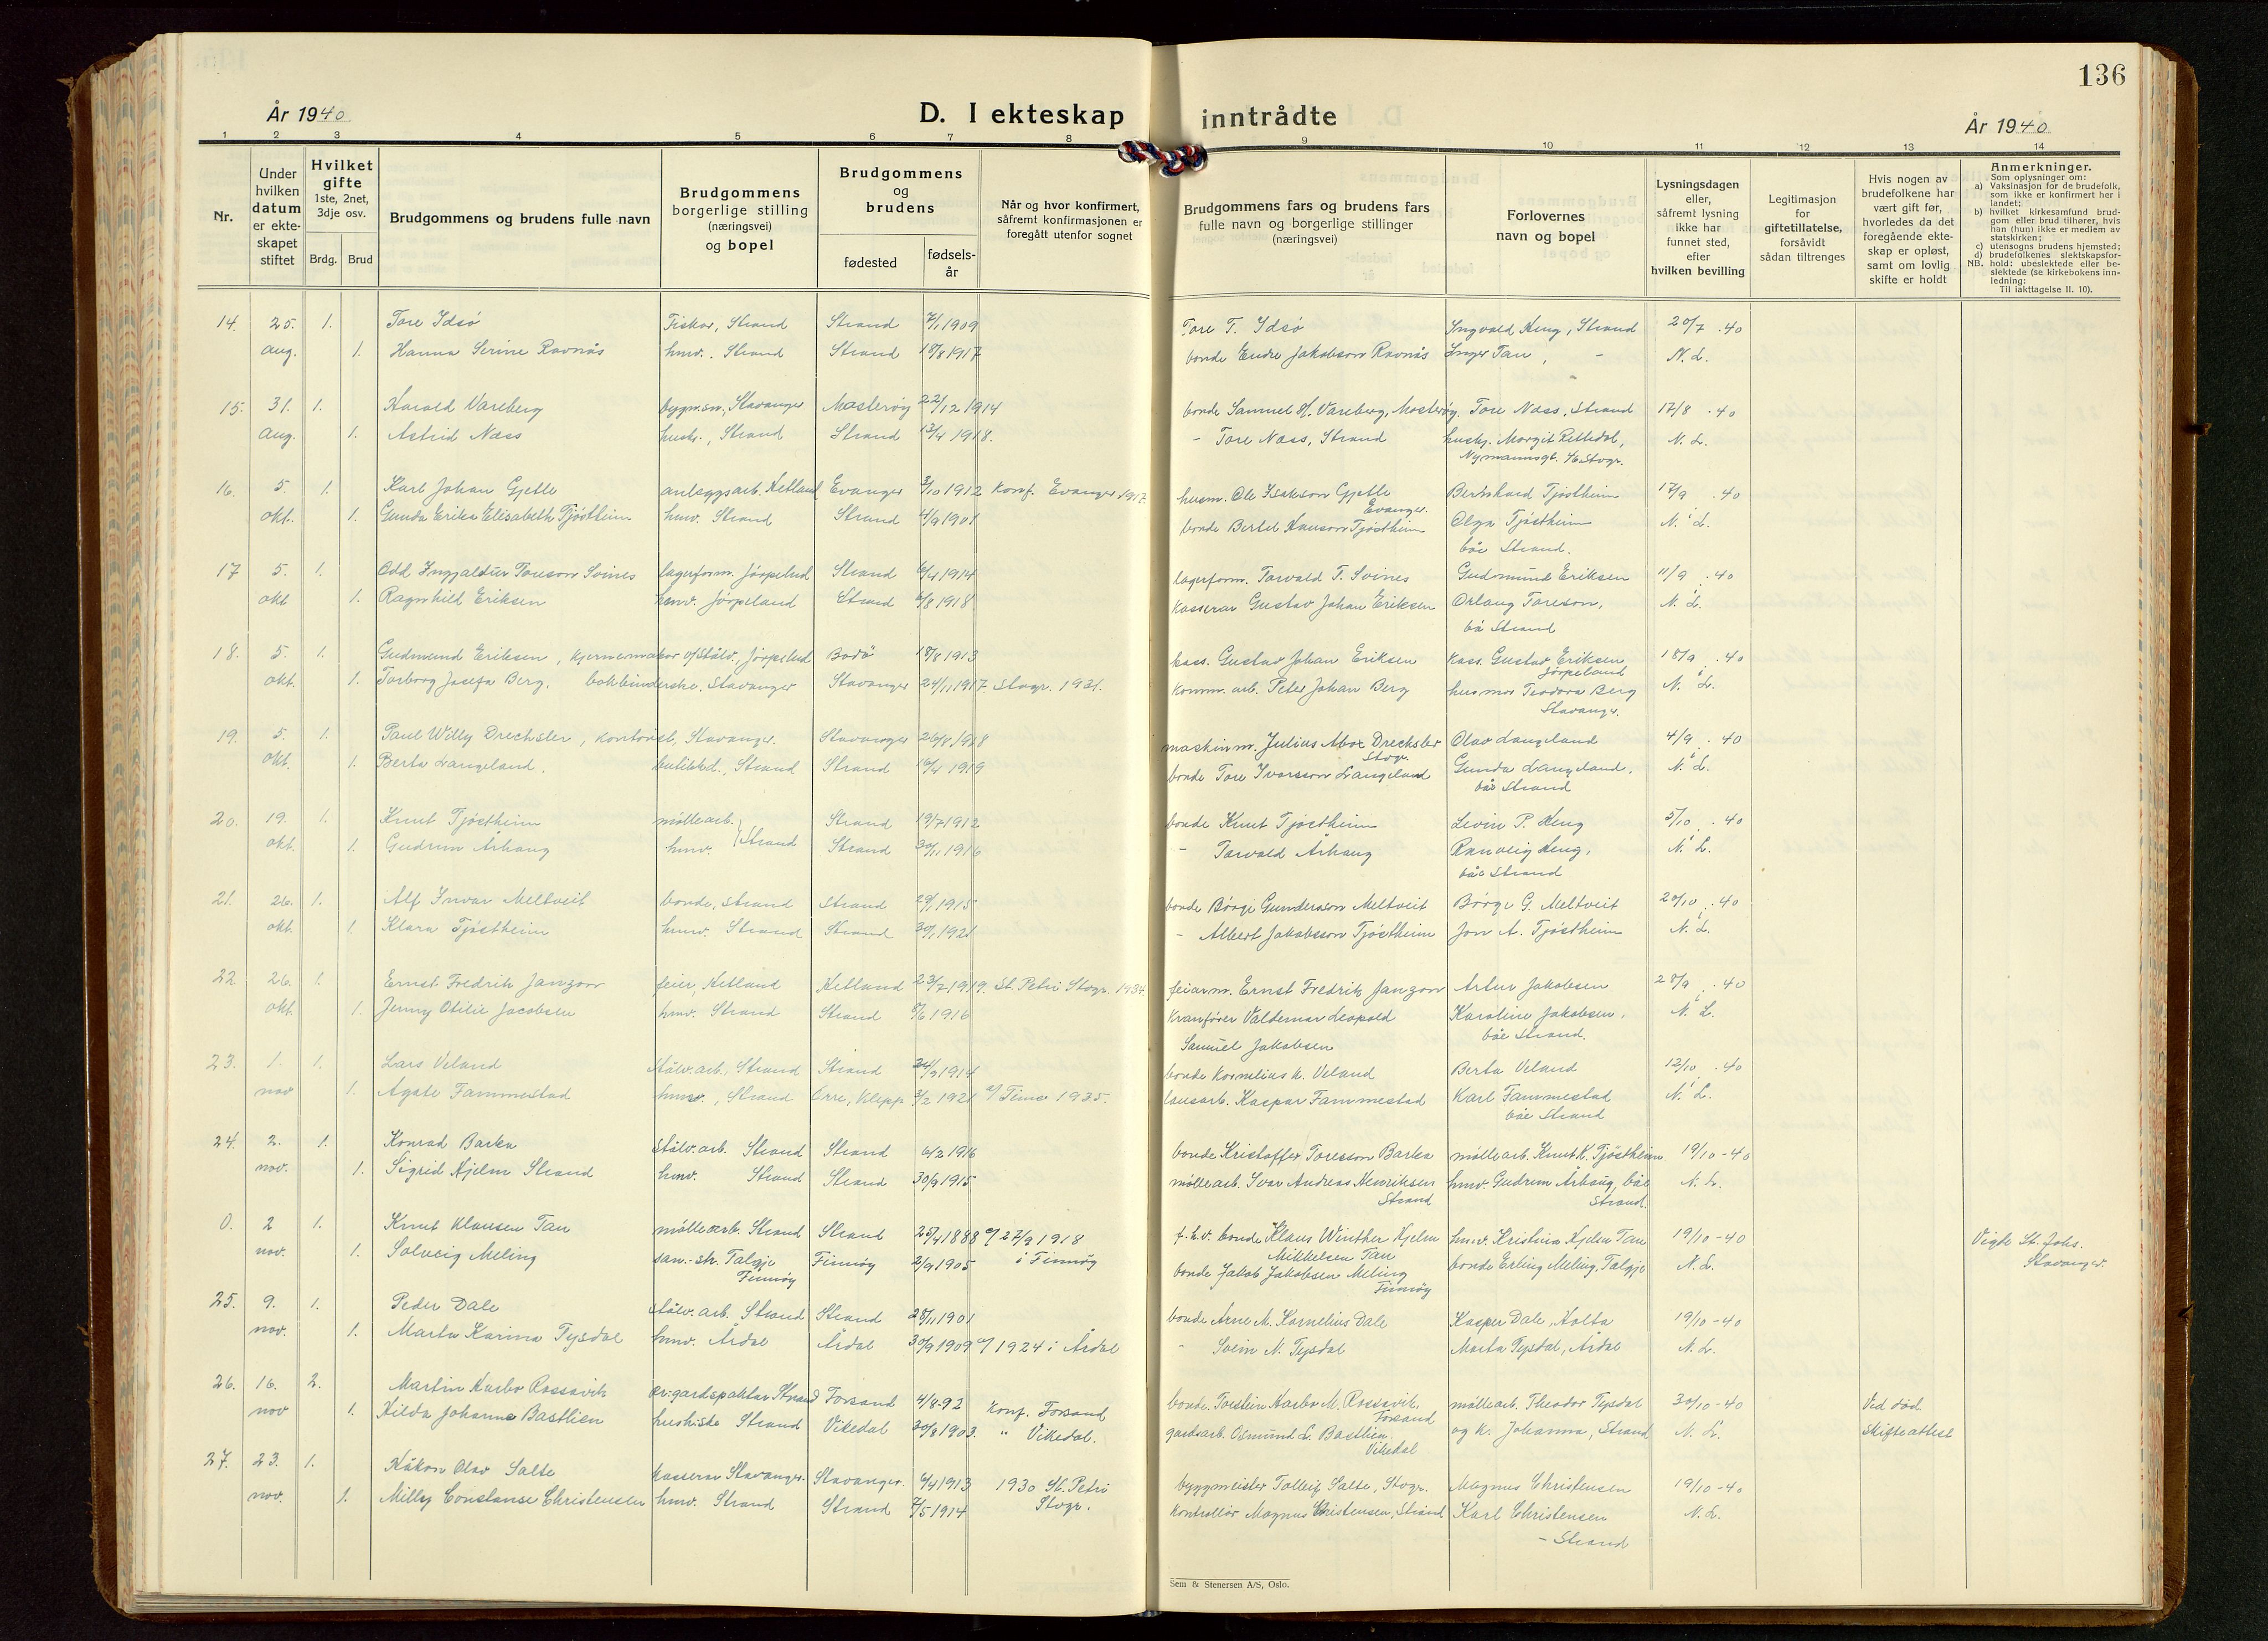 136
År 1940
D. I ekteskap inntrådte
År 1940
1 2 3 4 5 6 7 8 9 10 11 12 13 14
Nr.
Under hvilken datum er ekte-skapet stiftet
Hvilket gifte 1ste, 2net, 3dje osv.
Brdg. Brud
Brudgommens og brudens fulle navn
Brudgommens borgerlige stilling (næringsvei) og bopel
Brudgommens og brudens
fødested
fødsels-år
Når og hvor konfirmert, såfremt konfirmasjonen er foregått utenfor sognet
Brudgommens fars og brudens fars fulle navn og borgerlige stillinger (næringsvei)
Forlovernes navn og bopel
Lysningsdagen eller, såfremt lysning ikke har funnet sted, efter hvilken bevilling
Legitimasjon for giftetillatelse, forsåvidt sådan tiltrenges
Hvis nogen av brudefolkene har vært gift før, hvorledes da det foregående ekte-skap er opløst, samt om lovlig skifte er holdt
Anmerkninger.
Som oplysninger om:
a) Vaksinasjon for de brudefolk, som ikke er konfirmert her i landet;
b) hvilket kirkesamfund brud-gom eller brud tilhører, hvis han (hun) ikke er medlem av statskirken;
c) utensogns brudens hjemsted;
d) brudefolkenes slektskapsfor-
NB. hold: ubeslektede eller be-slektede (se kirkebokens inn-ledning:
Til iakttagelse II. 10).
14. 25. 1. Tore Idsö Fisker, Strand Strand 7/1 1909 Tore T. Idsö Ingvald Heng, Strand 20/7 .40
aug. 1. Hanna Serine Ravnås hmv., Strand Strand 18/8 1917 bonde Endre Jakobson Ravnås Inger Tau, - N. L.
15. 31. 1. Harald Vareberg bygm.sn, Stavanger Mosterøy 22/12 1914 bonde Samuel Vareberg, Mosterøy. Tore Næss, Strand 17/8 .40
aug. 1. Astrid Næss hush., Strand Strand 13/4 1918. - Tore Næss, Strand hushj. Margit Rettedal, N. L.
Nymannsgt. Stvgr.
16. 5. 1. Karl Johan Gjelle anleggsarb. Hetland Evanger 3/10 1912 konf. Evanger husm. Ole Isakson Gjelle Bernhard Tjöstheim 17/9 .40
Evanger.
okt. 1. Gunda Erika Elisabeth Tjöstheim hmv. Strand Strand 4/9 1901 bonde Bertel Hanson Tjöstheim Olga Tjöstheim N. L.
båe Strand.
17 5. 1. Odd Ingjaldur Toreson Svines lagerform. Jörpeland Strand 6/4 1914 lagerform. Torvald T. Svines Gudmund Eriksen 11/9 .40
okt 1. Ragnhild Eriksen hmv. Jörpeland Strand 6/8 1918 kasserar Gustav Johan Eriksen Orlaug Toreson, N. L.
bå Strand
18. 5. 1. Gudmund Eriksen, kjernemakar v/Stålv., Jörpelnd Bodö 18/8 1913 kass. Gustav Johan Eriksen Kass. Gustav Eriksen 18/9 .40
Jörpeland
okt. 1. Torborg Josefa Berg, bokbinderske, Stavanger Stavanger 24/11 1917. Stvgr. 1931. komm. arb. Peter Johan Berg husmor Teodora Berg N. L.
Stavanger.
19. 5. 1. Paul Willy Drechsler, kontorist, Stavanger. Stavanger 26/8 1918 maskinm. Julius Drechsler Olav Langeland 4/9 .40
Stvgr.
okt. 1. Berta Langeland. butikkd., Strand Strand 16/4 1919 bonde Tore Ivarsson Langeland Gunda Langeland, N. L.
båe Strand
20. 19. 1. Knut Tjöstheim möllearb. Strand 19/7 1912 bonde Knut Tjöstheim Levin P. Heng 5/10 .40
okt. 1. Gudrun Århaug hmv. } Strand Strand 30/11 1916 - Torvald Århaug Ranveig Heng, N. L.
båe Strand
21. 26. 1. Alf Invar Meltveit bonde, Strand Strand 29/1 1915 bonde Börge Gunderson Meltveit Börge G. Meltveit 20/10 .40
okt. 1. Klara Tjöstheim hmv. Strand Strand 30/1 1921 - Albert Jakobsson Tjöstheim Jon A. Tjöstheim N. L.
22 26. 1. Ernst Fredrik Janzon feier, Hetland Hetland 23/7 1919. St. Petri Stvgr. 1934. feiarm. Ernst Fredrik Janzon Artur Jakobsen 28/9 .40
okt. 1. Jenny Otilie Jacobsen hmv. Strand Strand 8/6 1916 kranförer Valdemar Leopold Karoline Jakobsen, N. L.
Samuel Jakobsen båe Strand.
23. 1. 1. Lars Veland stålv.arb., Strand Strand 24/9 1914 bonde Kornelius K. Veland Berta Veland 12/10 .40
nov 1. Agate Fammestad hmv., Strand Orre, Klepp 3/2 1921 Time 1935. lausarb. Kaspar Fammestad Karl Fammestad N. L.
båe Strand
24. 2. 1. Konrad Barka Stålv.arb. Strand Strand 6/2 1916 bonde Kristoffer Toresson Barka möllearb. Knut K. Tjöstheim 19/10 -40
nov. 1. Sigrid Hjelm Strand hmv. Strand Strand 30/9 1915 möllearb. Ivar Andreas Henriksen hmv. Gudrun Århaug, båe N. L.
Strand Strand.
0. 2 1. Knut Klausen Tau möllearb. Strand Strand 25/4 1888 27/9 1918 f. h.v. bonde Klaus Winther Hjelm hmv. Kristina Hjelm Tau 19/10 -40 Vigde St. Johs.
Mikkelsen Tau Stavanger.
nov. 1. Solveig Meling san.-str. Talgje Finnöy 2/9 1905 i Finnöy bonde Jakob Jakobsen Meling bonde Erling Meling, Talgje N. L.
Finnöy Finnöy
25. 9. 1. Peder Dale stålv. arb. Strand Strand 28/11 1901 bonde Arne M. Kornelius Dale Kasper Dale, Holta 19/10 -40
nov. 1. Marta Karina Tysdal hmv. Årdal Årdal 30/9 1909 1924 i Årdal - Svein N. Tysdal Marta Tysdal, Årdal N. L.
26. 16. 2. Martin Harbo Rossavik gardspaktar Strand Forsand 4/8-92 Konf. Forsand bonde Torstein Harbo M. Rossavik, möllearb. Theodor Tysdal 30/10 -40 Ved död.
Forsand
nov 1. Hilda Johanne Bastlien Strand Vikedal 30/8 1903. " Vikedal. gardsarb. Osmund L. Bastlien og k. Johanna, Strand N. L. Skifteattest
Vikedal
27. 23. 1. Håkon Olav Salte kasserar Stavanger. Stavanger. 6/4 1913 1930 St. Petri byggmeister Tolleif Salte, Stvgr. Magnus Christensen 19/10 -40
nov. 1. Milly Constanse Christensen hmv. Strand Strand 7/5 1914 Stvgr. kontrollör Magnus Christensen, Strand Karl Christensen N. L.
- Strand
Sem & Stenersen A/S, Oslo.